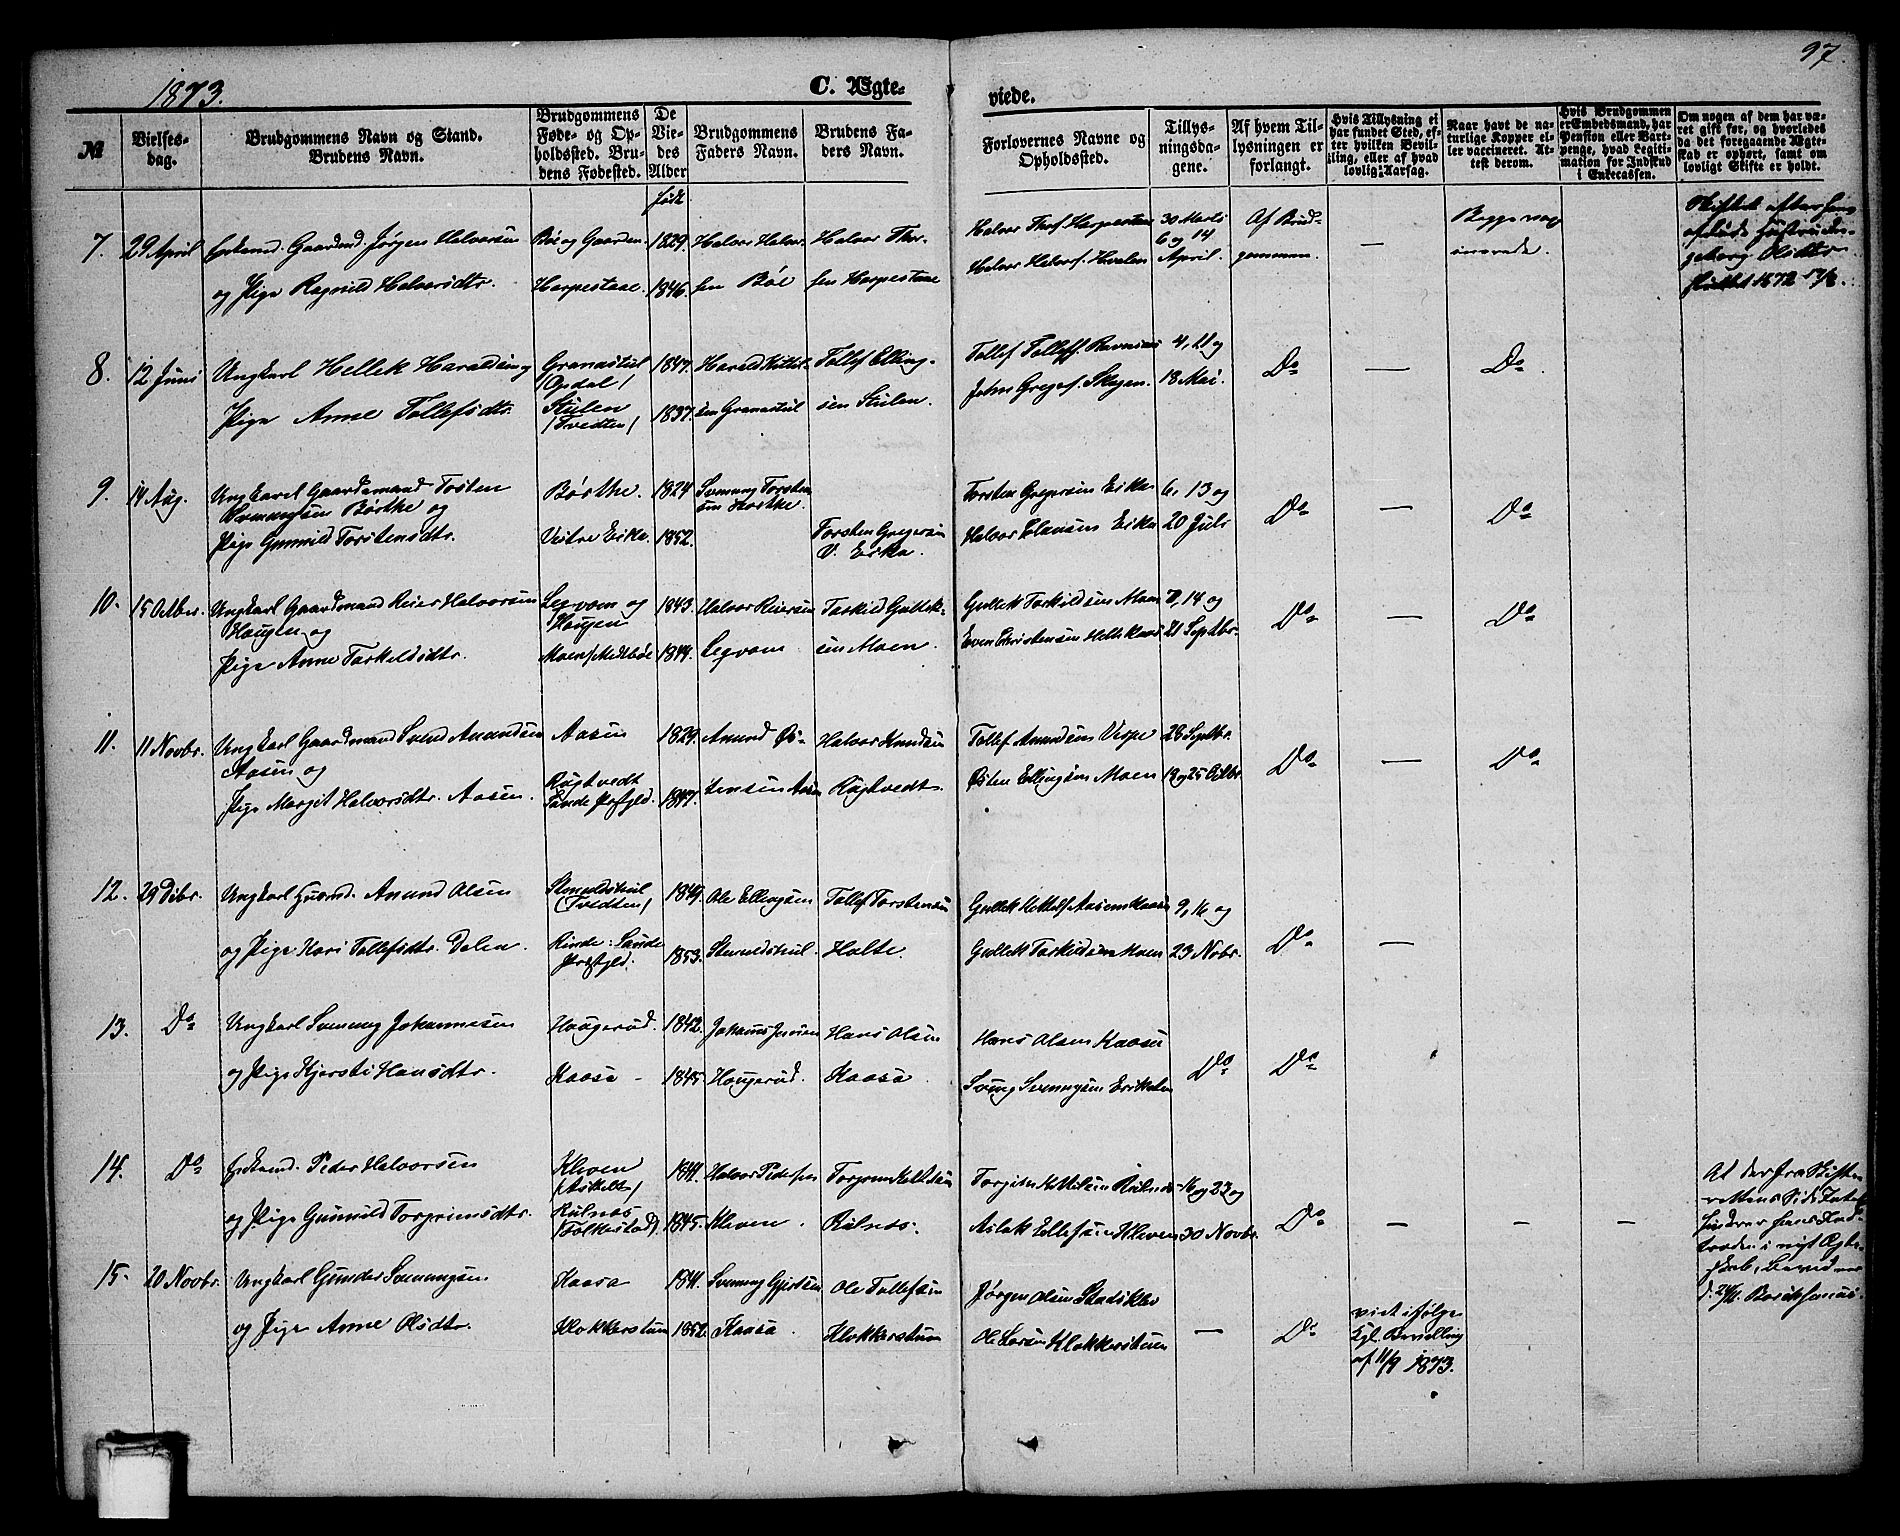 1873.
C. Ægte-
viede.
97.
№
Vielses-
dag.
Brudgommens Navn og Stand.
Brudens Navn.
Brudgommens
Føde- og Op-
holdssted. Bru-
dens Fødested.
De
Vie-
des
Alder
Brudgommens
Faders Navn.
Brudens Fa-
ders Navn.
Forlovernes Navne og
Opholdssted.
Tillys-
ningsda-
gene.
Af hvem Til-
lysningen er
forlangt.
Hvis Tillysning ei
har fundet Sted, ef-
ter hvilken Bevil-
ling, eller af hvad
lovlig Aarsag.
Naar havt de na-
turlige Kopper el-
ler vaccineret. At-
test derom.
Hvis Brudgommen
er Embedsmand, har
Pension eller Vart-
penge, hvad Legiti-
mation for Indskud
i Enkecassen.
Om nogen af dem har væ-
ret gift før, og hvorledes
da det foregaaende Ægte-
skab er ophørt, samt om
lovligt Skifte er holdt.
født
7. 29 April Enkemd. Gaardmd Jørgen Halvorsen
og Pige Ragnild Halvorsdtr.
Bøe og Gaarden
Harpestaae.
1829.
1846.
Halvor Halvor-
sen Bøe
Halvor Thor-
sen Harpestaae
Halvor Thors. Harpestaae
Halvor Halvors. Hvalen
30 Marts
6 og 14
April.
Af Brud-
gommen.
—
Begge vac-
cinerede.
Skiftet efter hans
afdøde Hustru In-
geborg Olsdtr
sluttet 1872
8. 12 Juni Ungkarl Hellek Haraldsen og
Pige Anne Tollefsdtr.
Granastul
/Opdal/
Stulen
/Tvedten/
1847.
1837.
Harald Kittil-
sen Granastul
Tollef Elling-
sen Stulen.
Tollef Tollefs. Ravnaas
John Gregers. Skogen.
4, 11 og
18 Mai.
Do
—
Do
9. 14 Aug. Ungkarl Gaardemand Tosten
Svenungsen Børthe og
Pige Gunnild Torstensdtr.
Børthe.
Vestre Eika.
1824
1852.
Svenung Torsten
sen Børthe.
Torsten Gregersen
V. Eika.
Torsten Gregersen Eika
Halvor Olavsen Eika
6, 13 og
20 Juli
Do
—
Do
10. 15 Octbr. Ungkarl Gaardmand Reier Halvorsen
Haugen og
Pige Anne Taskildsdtr.
Legvom og
Haugen
Moen/Midtbøe
1843.
1844.
Halvor Reiersen
Legvom
Taskild Gullek-
sen Moen.
Gullek Taskildsen Moen
Even Christensen Hellekaas
7, 14 og
21 Septbr.
Do
—
Do
11. 11 Novbr. Ungkarl Gaardmand Svend Amundsen
Aasen og
Pige Margit Halvorsdtr. Aasen.
Aasen
Røgtvedt
Sande Præstgld.
1829.
1847.
Amund Øs-
tensen Aasen
Halvor Knudsen
Røgtvedt.
Tollef Amundsen Vespe
Østen Ellingsen Moen
28 Septbr.
18 og 25 Octbr.
Do
—
Do
12. 29 Dcbr. Ungkarl Husmd. Amund Olsen
og Pige Kari Tollefsdtr. Dalen.
Stenulsstul
/Tvedten/
Rinde: Sande
Præstgld.
1849.
1853.
Ole Ellingsen
Stenulsstul.
Tollef Torstensen
Holte.
Gullek Kittels. Aasenkaasa
Gullek Taskildsen Moen
9, 16 og
23 Nobr.
Do
—
13. Do Ungkarl Svenung Johannesen
og Pige Kjersti Hansdtr.
Hougerud.
Kaasa
1842.
1845.
Johannes Jensen
Hougerud.
Hans Olsen
Kaasa
Hans Olsen Kaasa
Svenung Svenungsen Erikstein
Do
Do
14. Do Enkemd. Peder Halvorsen
og Pige Gunnild Torgrimsdtr.
Kleven
/Askelt/
Rulnes
/Folkestad/
1841.
1845.
Halvor Pedersen
Kleven.
Torgrim Kittilsen
Rulnes.
Torgrim Kittilsen Rulnes
Aslak Ellefsen Kleven
16 og 23 og
30 Novbr.
Do
—
—
—
At der fra Skifte-
rettens Side Intet
hindrer hans Ind-
træden i nyt Ægte-
skab, bevidnes
15. 20 Novbr. Ungkarl Gunder Svenungsen
og Pige Anne Olsdtr.
Kaasa
Klokkerstuen
1841.
1852.
Svenung Gjertsen
Kaasa.
Ole Tollefsen
Klokkerstuen
Jørgen Olsen Stadsklev
Ole Larsen Klokkerstuen
—
Do
viet ifølge
Kgl. Bevilling
af 11/9 1873.